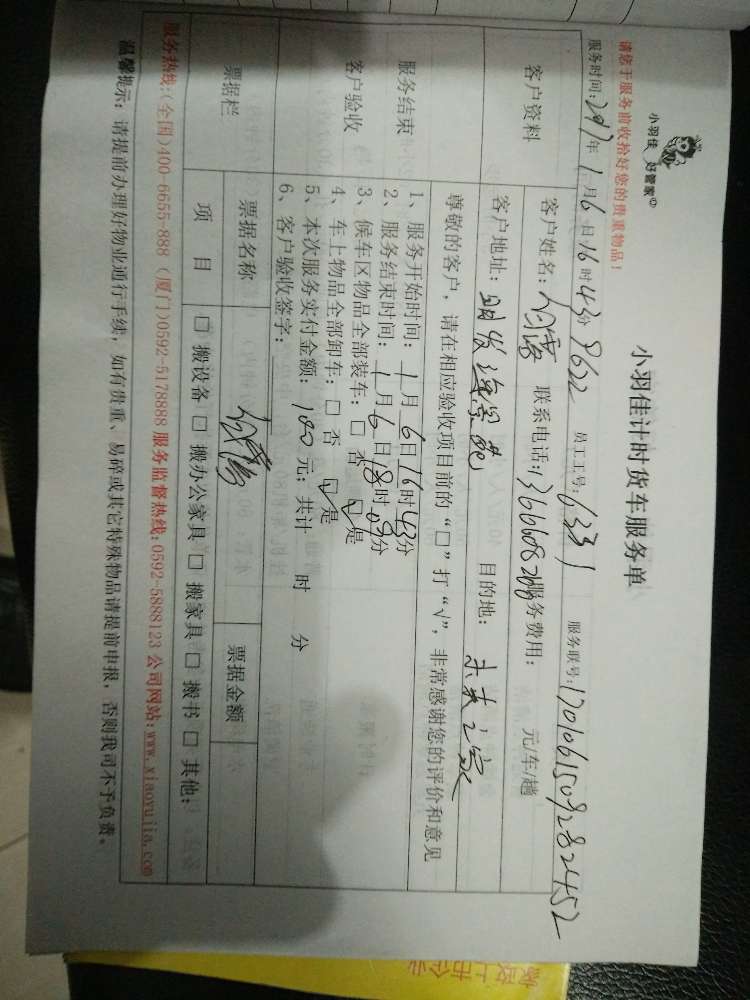 小羽佳 好管家
小羽佳计时货车服务单
请您于服务前收拾好您的贵重物品！
服务时间：2017年1月6日16时43分 员工工号：6331 服务联号：1701061509282452
客户资料
客户姓名： 联系电话： 服务费用： 元/车/趟
客户地址：明发 目的地：未来之家
服务结束
客户验收
尊敬的客户，请在相应验收项目前的“□”打“√”，非常感谢您的评价和意见
1、服务开始时间：1月6日16时43分
2、服务结束时间：1月6日18时09分
3、候车区物品全部装车：□否 ☑是
4、车上物品全部卸车：□否 ☑是
5、本次服务实付金额：180元；共计 时 分
6、客户验收签字：
票据栏
票据名称
票据金额
项目 □搬设备 □搬办公家具 □搬家具 □搬书 □其他：
服务热线：(全国)400-6655-888 (厦门)0592-5178888 服务监督热线：0592-5888123 公司网站：www.xiaoyujia.com
温馨提示：请提前办理好物业通行手续，如有贵重、易碎或其它特殊物品请提前申报，否则我司不予负责。
家政上市企业